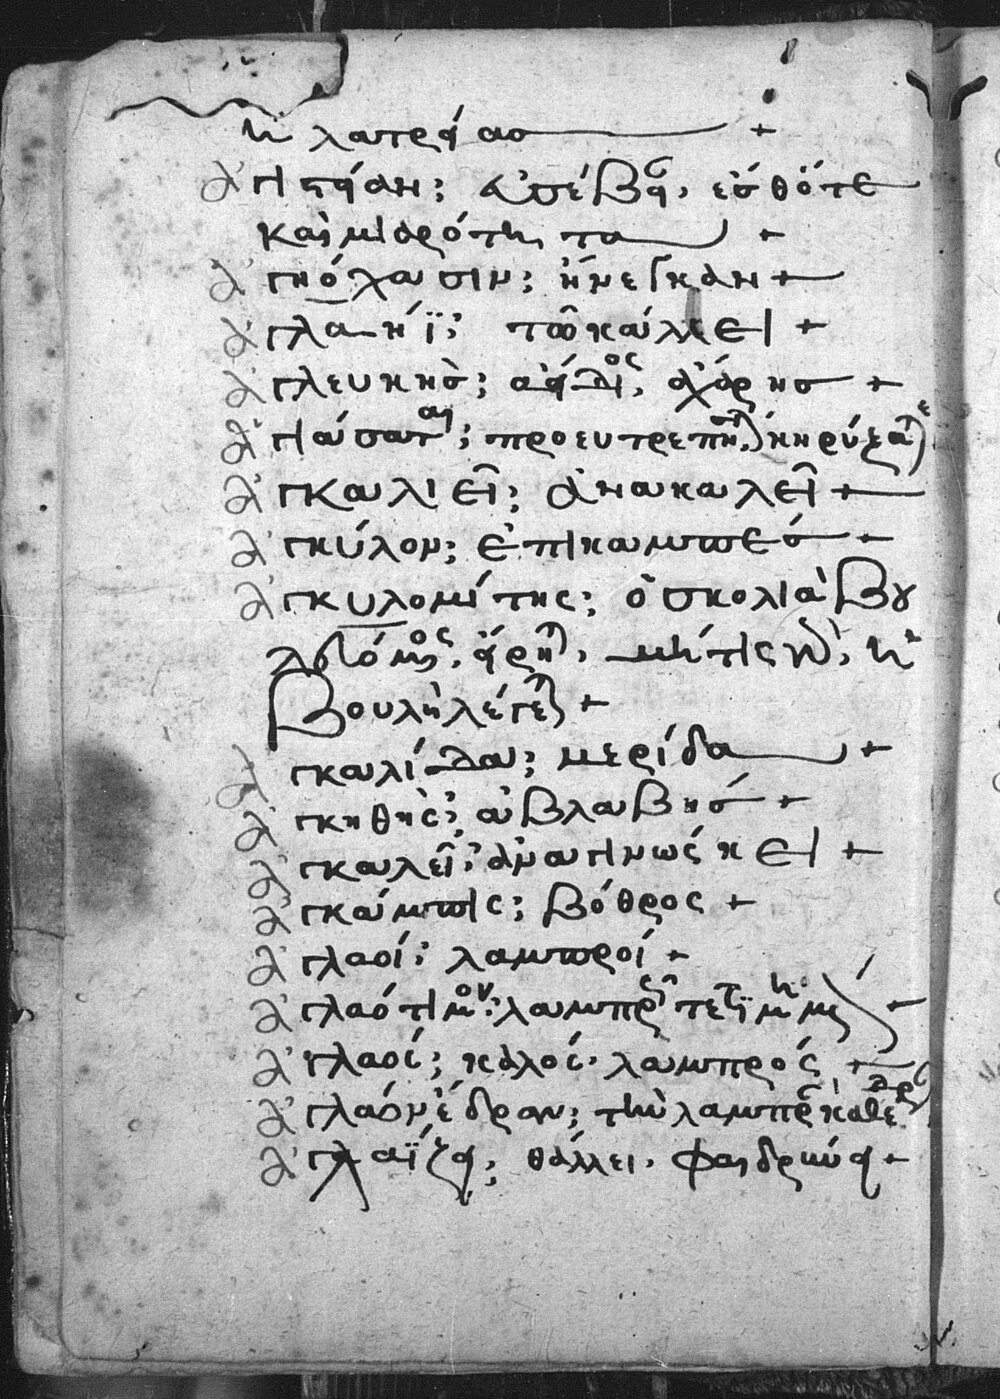 ἢ λατρείασ +
Ἀγιστείαν; εὐσέβειαν, ἐσθότε
καὶ μιαρότητα +
Ἀγηόχασιν; ἤνεγκαν +
Ἀγλαηΐ; τῶ κάλλει +
Ἀγλευκησ; ἀειδὸς, ἀχάρησ +
Ἀγιάσατε; προευτρεπήσατε, κηρύξατε
Ἀγκαλιεῖ; ἀνακαλεῖ +
Ἀγκύλον; ἐπικαμπὲσ +
Ἀγκυλομήτης; ὁ σκολιὰ βου
λευόμενος, εἴρηται, μήτις γὰρ, ἡ
βουλὴ λέγεται +
Ἀγκαλίδα; μερίδα +
Ἀγκηθὴς; ἀβλαβησ +
Ἀγκαλεῖ; ἀναγινώσκει +
Ἀγκάμπις; βόθρος +
Ἀγλαοί; λαμπροί +
Ἀγλαότιμον; λαμπρῶς τετιμημένον
Ἀγλαοί; καλοί. λαμπρός +
Ἀγλαὸν ἕδραν; τὴν λαμπρὰν καθέδραν
Ἀγλαΐζει; θάλλει. φαιδρύνει +